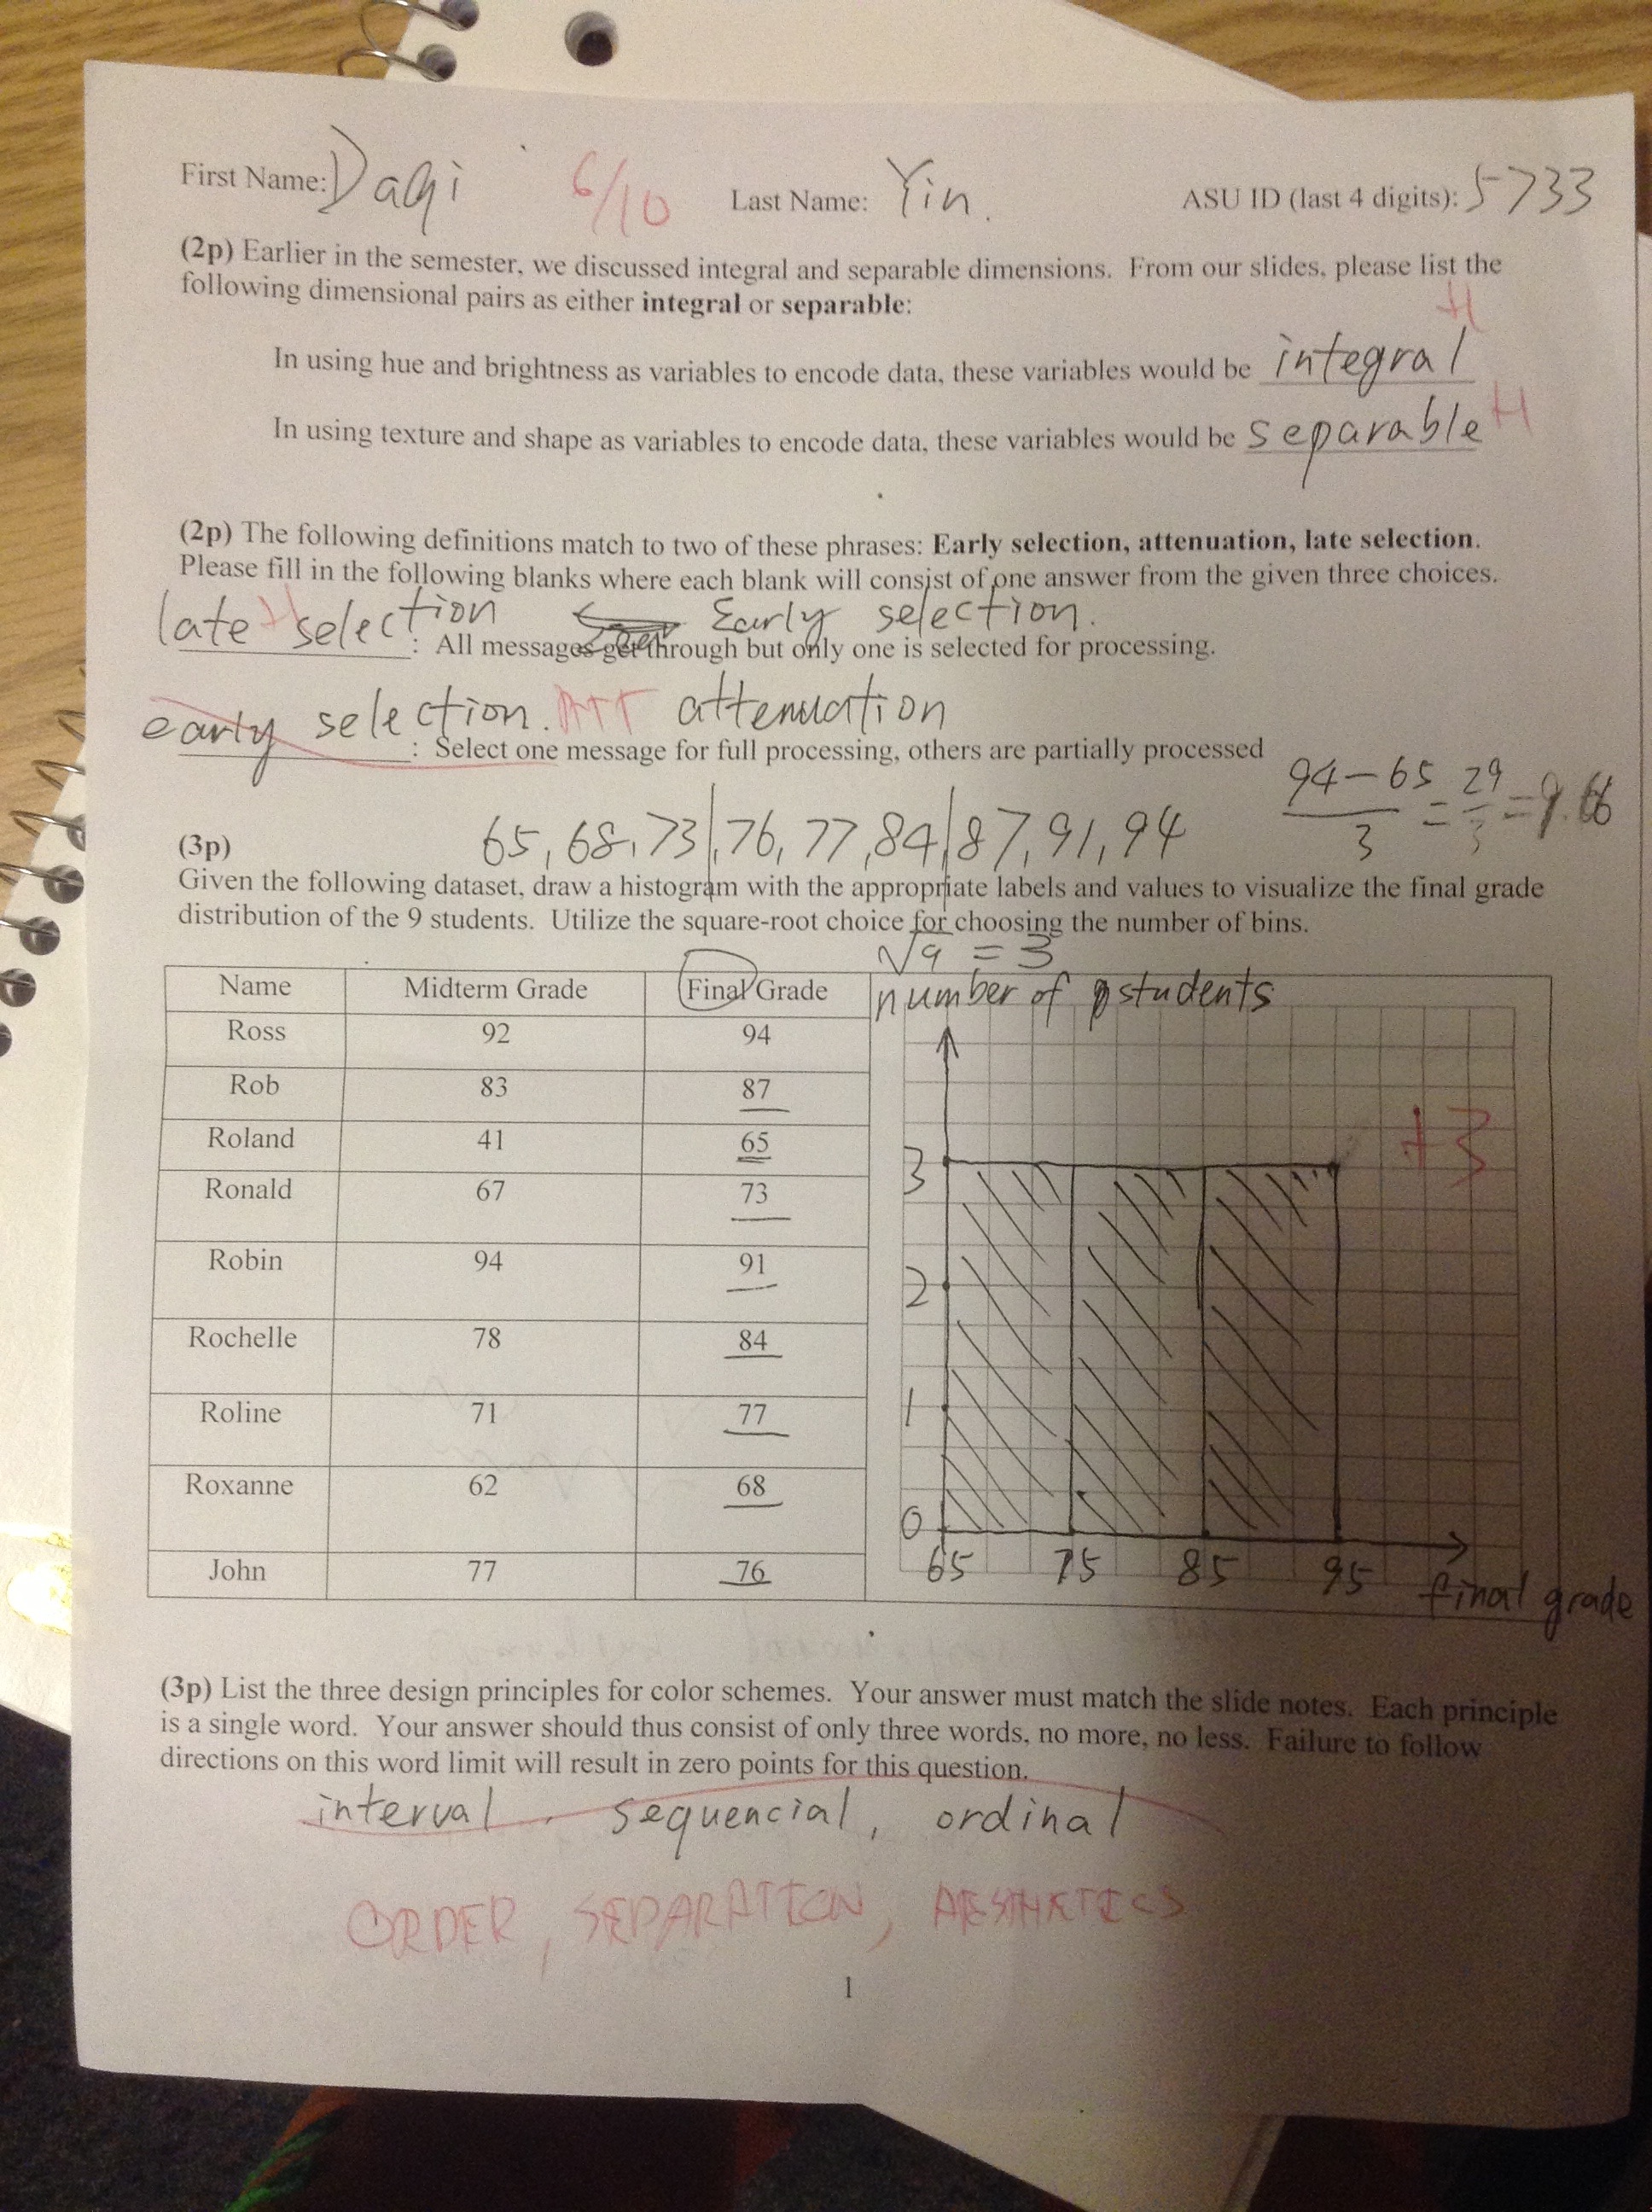 First Name: Daqi 6/10 Last Name: Yin. ASU ID (last 4 digits): 5733
(2p) Earlier in the semester, we discussed integral and separable dimensions. From our slides, please list the
following dimensional pairs as either integral or separable:
+1
In using hue and brightness as variables to encode data, these variables would be integral
In using texture and shape as variables to encode data, these variables would be separable +1
(2p) The following definitions match to two of these phrases: Early selection, attenuation, late selection.
Please fill in the following blanks where each blank will consist of one answer from the given three choices.
late +1 selection Early selection.
: All messages get through but only one is selected for processing.
early selection. ATT attenuation
: Select one message for full processing, others are partially processed
94-65/3 = 29/3 = 9.66
(3p) 65, 68, 73|, 76, 77, 84|, 87, 91, 94
Given the following dataset, draw a histogram with the appropriate labels and values to visualize the final grade
distribution of the 9 students. Utilize the square-root choice for choosing the number of bins.
√9 = 3
Name Midterm Grade Final Grade number of students
Ross 92 94
Rob 83 87
Roland 41 65
Ronald 67 73
Robin 94 91
Rochelle 78 84
Roline 71 77
Roxanne 62 68
John 77 76
+3
3
2
1
0
65 75 85 95 final grade
(3p) List the three design principles for color schemes. Your answer must match the slide notes. Each principle
is a single word. Your answer should thus consist of only three words, no more, no less. Failure to follow
directions on this word limit will result in zero points for this question.
interval, sequencial, ordinal
ORDER, SEPARATION, AESTHETICS
1